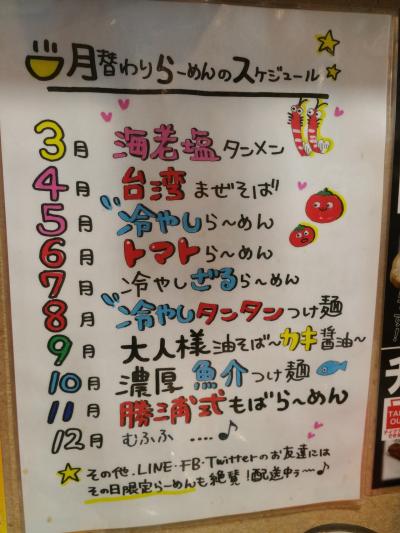 月替わりらーめんのスケジュール
3月 海老塩タンメン
4月 台湾まぜそば
5月 冷やしら〜めん
6月 トマトら〜めん
7月 冷やしざるら〜めん
8月 冷やしタンタンつけ麺
9月 大人様油そば〜カキ醤油〜
10月 濃厚魚介つけ麺
11月 勝浦式もばら〜めん
12月 むふふ ....♪
その他、LINE・FB・Twitterのお友達には
その日限定らーめんも絶賛!配送中ぅ〜♪